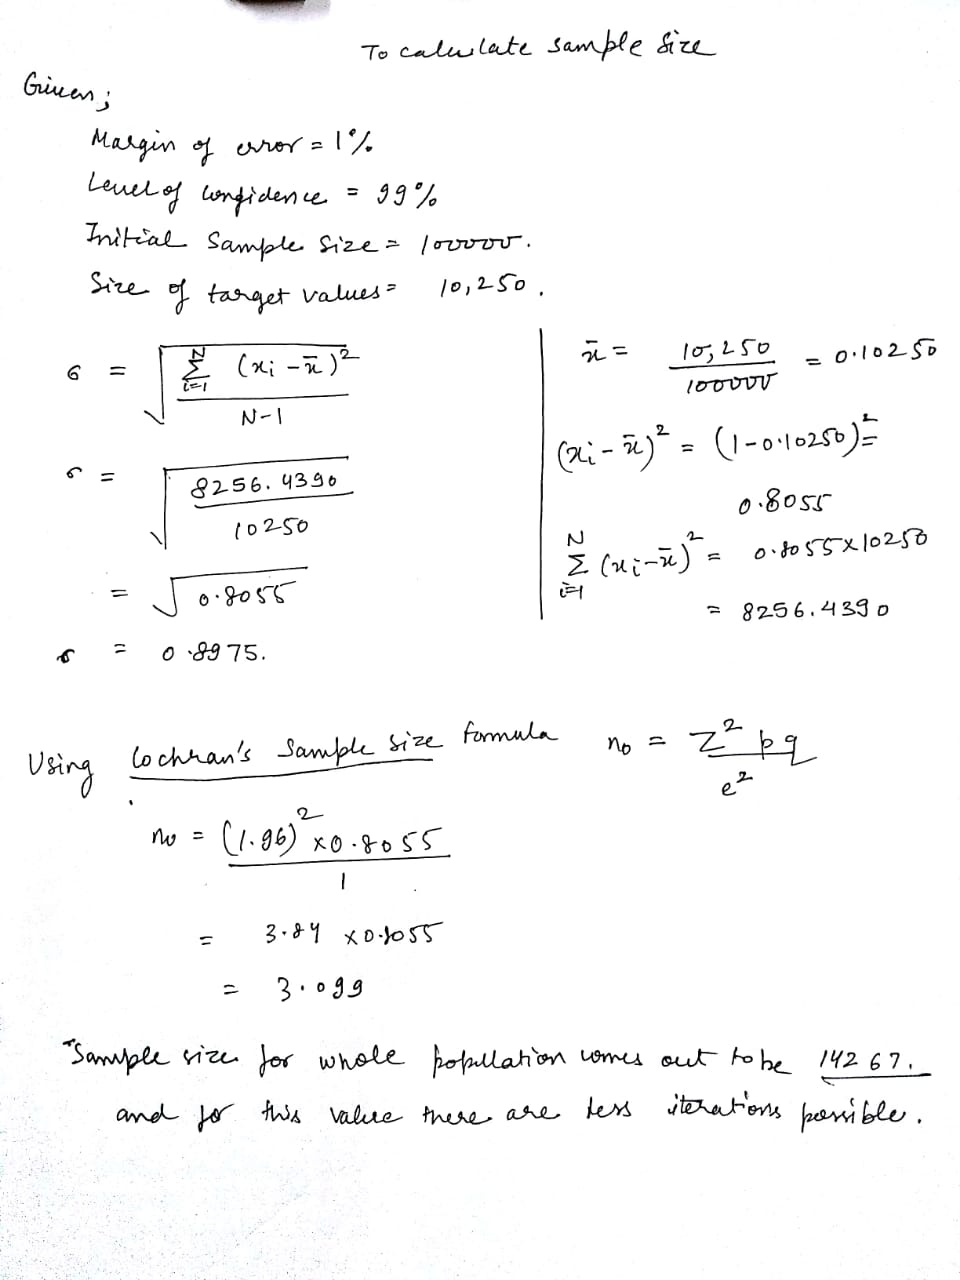 To calculate sample size
Given;
Margin of error = 1%
Level of confidence = 99%
Initial sample size = 100000.
Size of target values = 10,250.
σ = √(Σ_{i=1}^{N} (xi - x̄)² / N-1)
σ = √(8256.4390 / 10250)
= √0.8055
σ = 0.8975.
x̄ = 10,250 / 100000 = 0.10250
(xi - x̄)² = (1-0.10250)² =
0.8055
Σ_{i=1}^{N} (xi - x̄)² = 0.8055 x 10250
= 8256.4390
Using Cochran's Sample size formula n₀ = Z² pq / e²
n₀ = (1.96)² x 0.8055 / 1
= 3.84 x 0.8055
= 3.099
"Sample size for whole population comes out to be 14267.
and for this value there are less iterations possible.